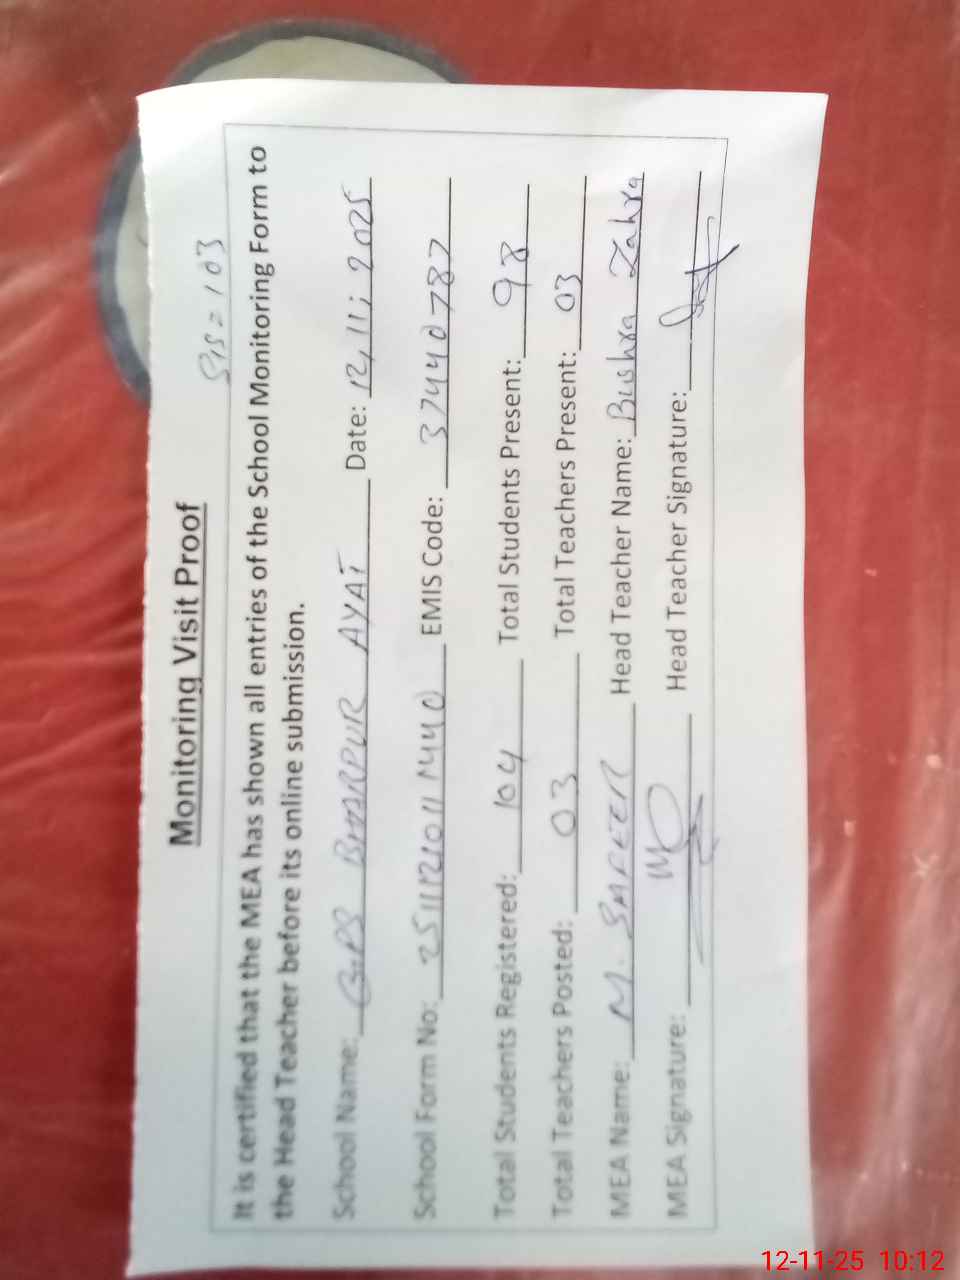 Monitoring Visit Proof
SIS = 103
It is certified that the MEA has shown all entries of the School Monitoring Form to
the Head Teacher before its online submission.
School Name: GPS AYAT Date: 12, 11; 2025
School Form No: EMIS Code: 37440787
Total Students Registered: 104 Total Students Present: 98
Total Teachers Posted: 03 Total Teachers Present: 03
MEA Name: M. SAFEER Head Teacher Name: Bushra Zahra
MEA Signature: Head Teacher Signature:
12-11-25 10:12